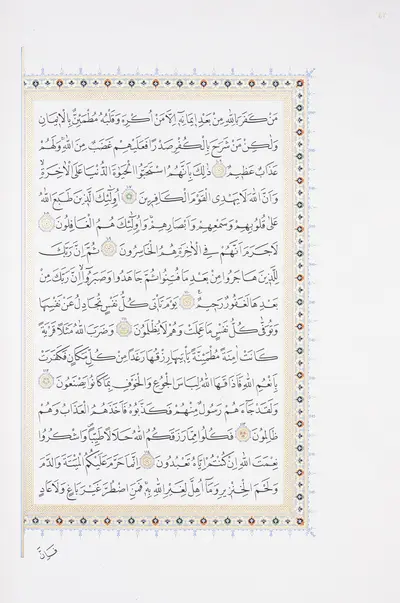 مَنْ كَفَرَ بِاللهِ مِنْ بَعْدِ إِيمَانِهِ إِلَّا مَنْ أُكْرِهَ وَقَلْبُهُ مُطْمَئِنٌّ بِالْإِيمَانِ
وَلٰكِنْ مَنْ شَرَحَ بِالْكُفْرِ صَدْرًا فَعَلَيْهِمْ غَضَبٌ مِنَ اللهِ وَلَهُمْ
عَذَابٌ عَظِيمٌ ذٰلِكَ بِأَنَّهُمُ اسْتَحَبُّوا الْحَيٰوةَ الدُّنْيَا عَلَى الْآخِرَةِ
وَأَنَّ اللهَ لَا يَهْدِي الْقَوْمَ الْكَافِرِينَ أُولٰئِكَ الَّذِينَ طَبَعَ اللهُ
عَلَى قُلُوبِهِمْ وَسَمْعِهِمْ وَأَبْصَارِهِمْ وَأُولٰئِكَ هُمُ الْغَافِلُونَ
لَا جَرَمَ أَنَّهُمْ فِي الْآخِرَةِ هُمُ الْخَاسِرُونَ ثُمَّ إِنَّ رَبَّكَ
لِلَّذِينَ هَاجَرُوا مِنْ بَعْدِ مَا فُتِنُوا ثُمَّ جَاهَدُوا وَصَبَرُوا إِنَّ رَبَّكَ مِنْ
بَعْدِهَا لَغَفُورٌ رَحِيمٌ يَوْمَ تَأْتِي كُلُّ نَفْسٍ تُجَادِلُ عَنْ نَفْسِهَا
وَتُوَفَّى كُلُّ نَفْسٍ مَا عَمِلَتْ وَهُمْ لَا يُظْلَمُونَ وَضَرَبَ اللهُ مَثَلًا قَرْيَةً
كَانَتْ آمِنَةً مُطْمَئِنَّةً يَأْتِيهَا رِزْقُهَا رَغَدًا مِنْ كُلِّ مَكَانٍ فَكَفَرَتْ
بِأَنْعُمِ اللهِ فَأَذَاقَهَا اللهُ لِبَاسَ الْجُوعِ وَالْخَوْفِ بِمَا كَانُوا يَصْنَعُونَ
وَلَقَدْ جَاءَهُمْ رَسُولٌ مِنْهُمْ فَكَذَّبُوهُ فَأَخَذَهُمُ الْعَذَابُ وَهُمْ
ظَالِمُونَ فَكُلُوا مِمَّا رَزَقَكُمُ اللهُ حَلَالًا طَيِّبًا وَاشْكُرُوا
نِعْمَتَ اللهِ إِنْ كُنْتُمْ إِيَّاهُ تَعْبُدُونَ إِنَّمَا حَرَّمَ عَلَيْكُمُ الْمَيْتَةَ وَالدَّمَ
وَلَحْمَ الْخِنْزِيرِ وَمَا أُهِلَّ لِغَيْرِ اللهِ بِهِ فَمَنِ اضْطُرَّ غَيْرَ بَاغٍ وَلَا عَادٍ
فَإِنَّ